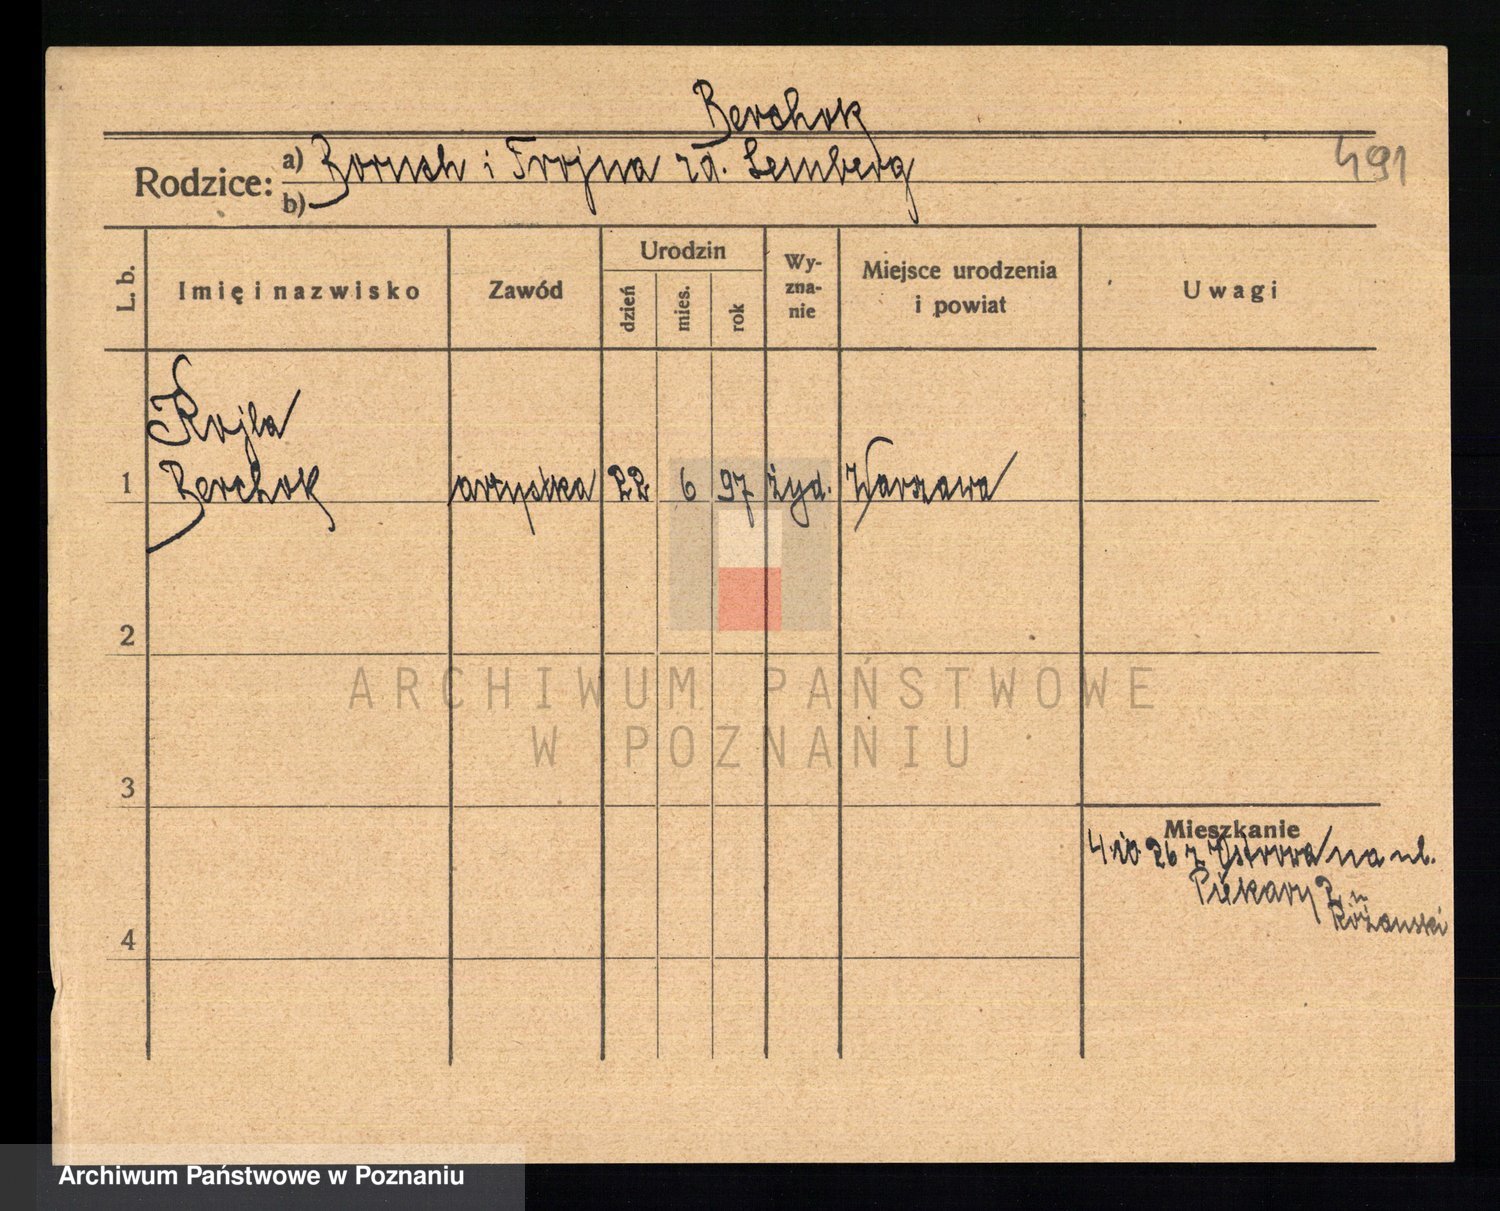 Berchok
Rodzice: a) Boruch i Frojna zd. Lemberg
b)
491
L. b.
Imię i nazwisko
Zawód
Urodzin
dzień
mies.
rok
Wy-
zna-
nie
Miejsce urodzenia
i powiat
Uwagi
Kojla
1 Berchok artystka 22 6 97 żyd. Warszawa
2
ARCHIWUM PAŃSTWOWE
W POZNANIU
3
Mieszkanie
4.10 26 z Ostrowa na ul.
Piekary 2 u
Różanski
4
Archiwum Państwowe w Poznaniu